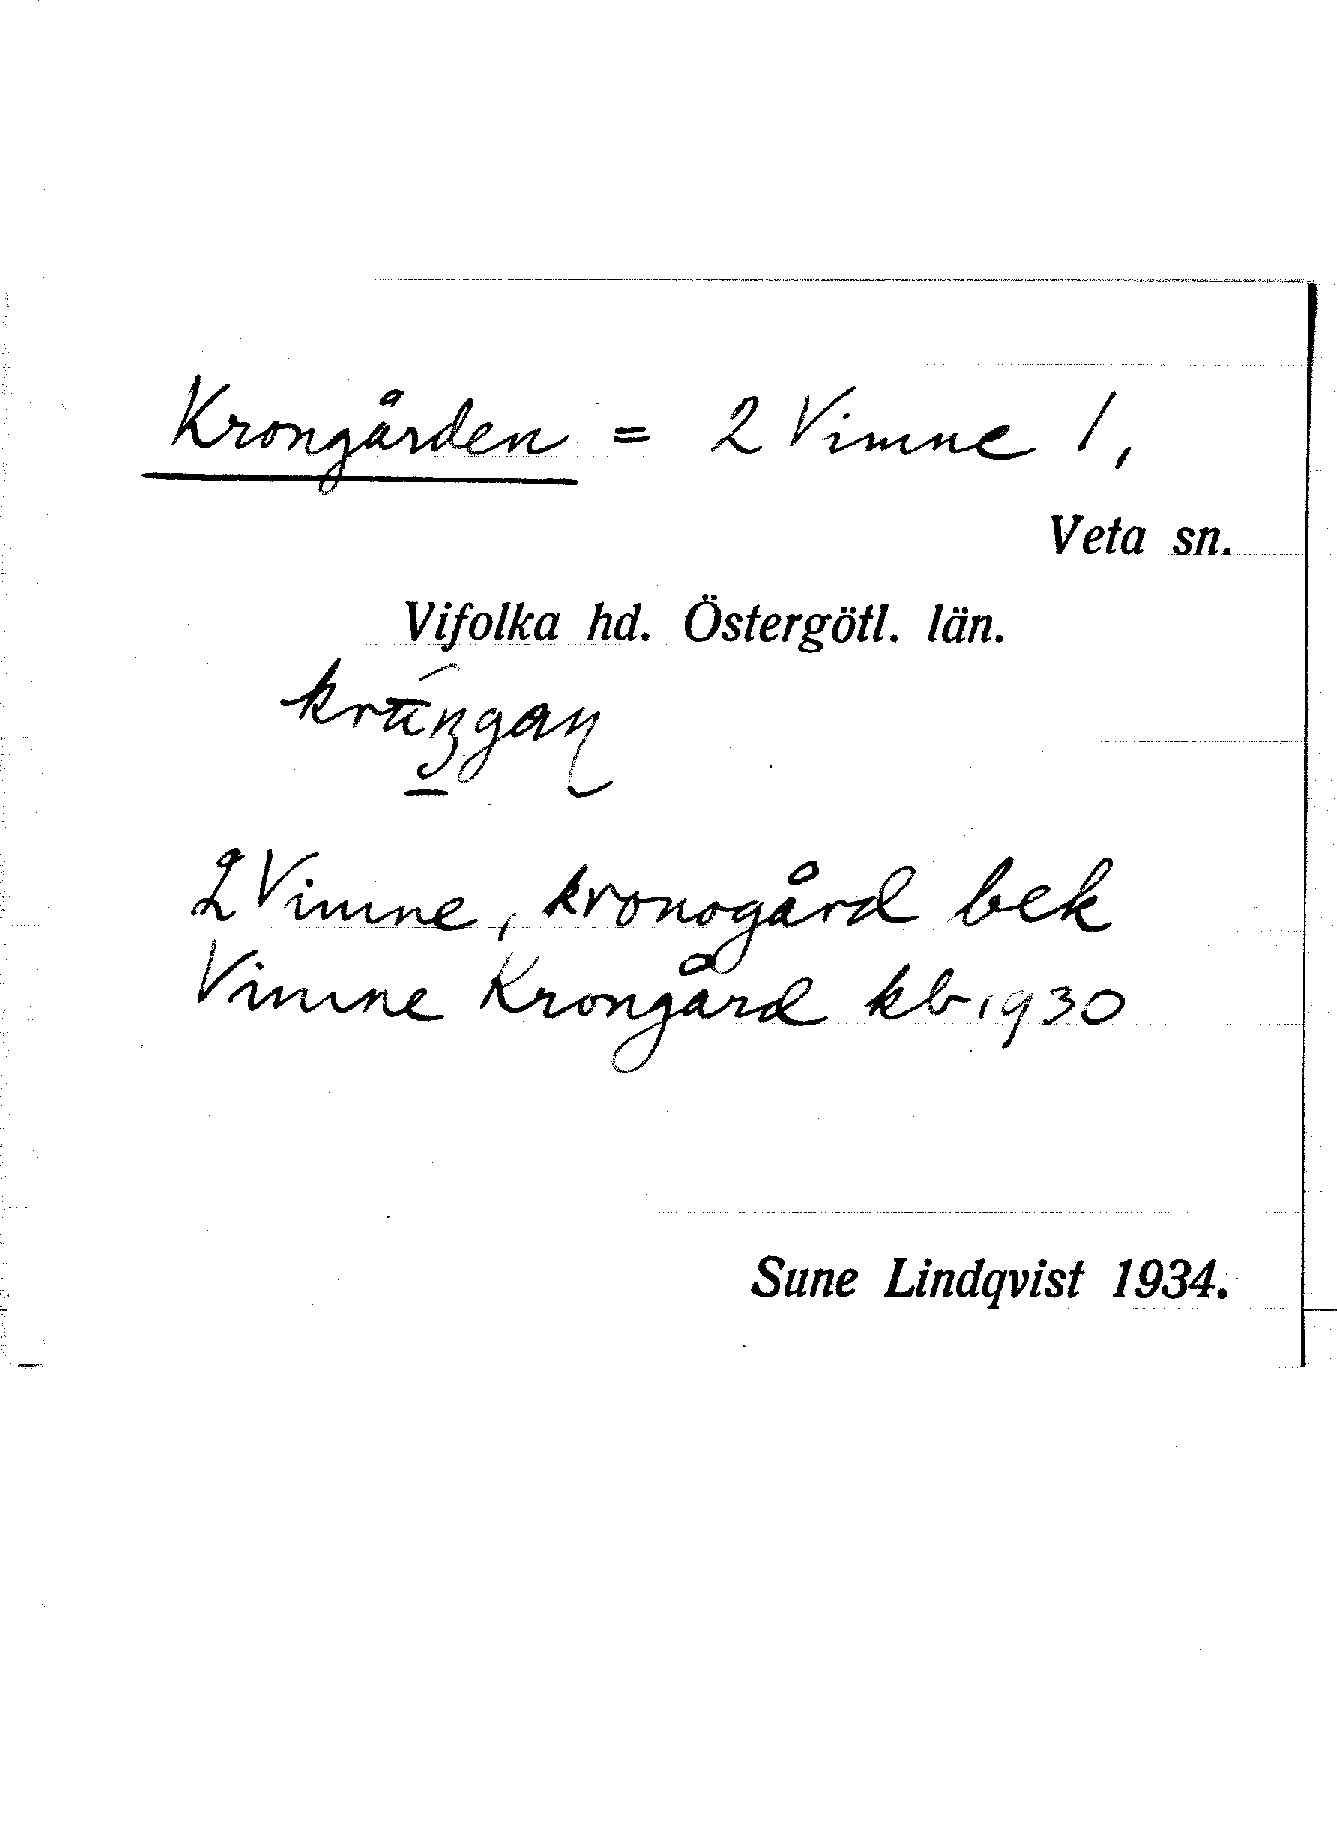 Krongården = 2 Vimne 1,
Veta sn.
Vifolka hd. Östergötl. län.
2 Vimne, kronogård bek
Vimne Krongård kb 1930
Sune Lindqvist 1934.